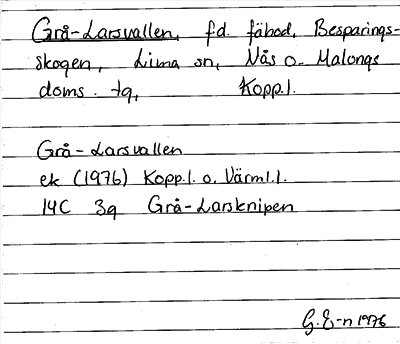 Grå-Larsvallen, f.d. fäbod, Besparings-
skogen, Lima sn, Nås o. Malungs
doms. tg, Kopp.l.
Grå-Larsvallen
ek (1976) Kopp.l. o. Värml.l.
14C 3g Grå-Larsknipen
G.E-n 1976